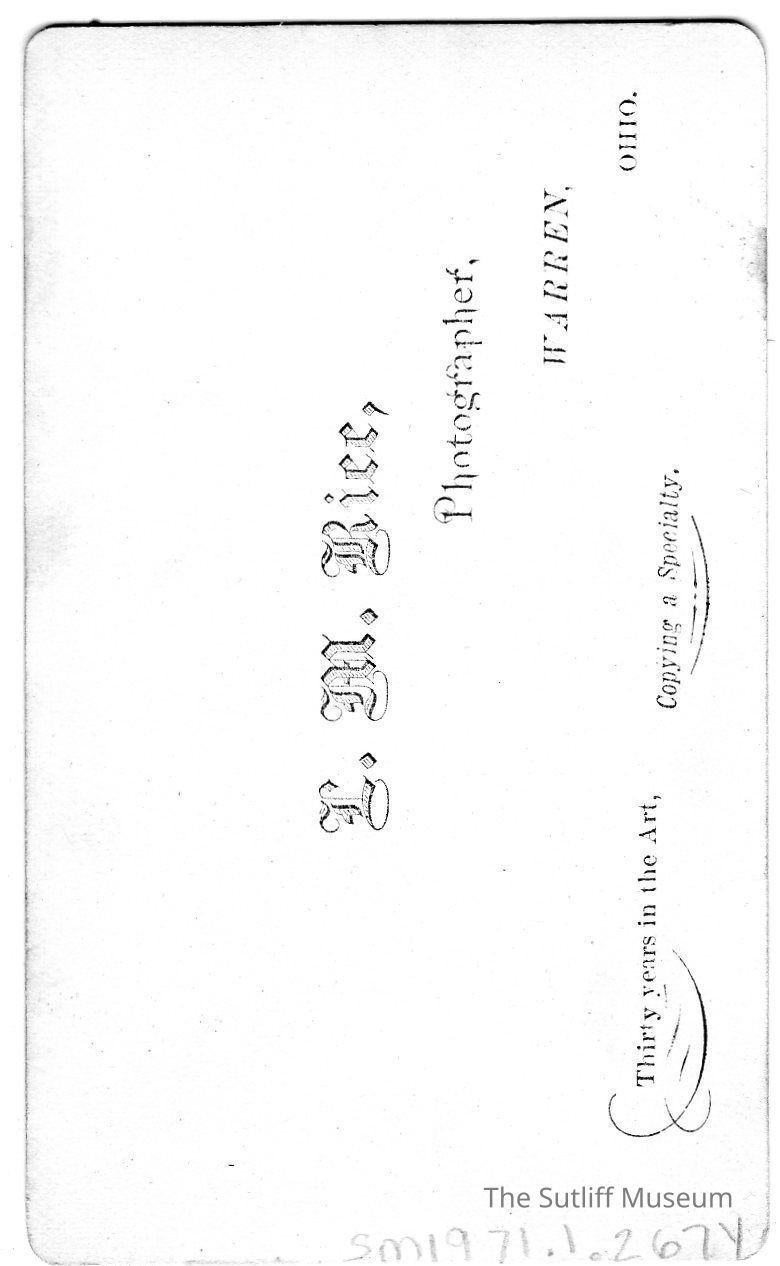 L. M. Rice,
Photographer,
WARREN,
OHIO.
Thirty years in the Art,
Copying a Specialty.
The Sutliff Museum
SM1971.1.267